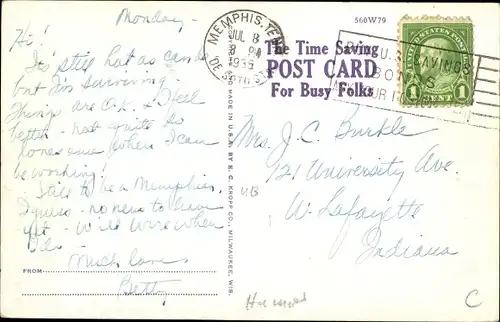 Monday -
Hi!
It's still hot as can be
but I'm surviving.
Things are O.K. & I feel
better - not quite so
lonesome when I can
be working!
Still to be in Memphis,
I guess - no news to
yet - Will wire when
I do -
Much love
Betty
FROM
AND MADE IN U.S.A. BY E. C. KROPP CO., MILWAUKEE, WIS.
MEMPHIS, TENN.
JUL 8
8 PM
1935
560W79
The Time Saving
POST CARD
For Busy Folks
U.S. SAVINGS
BONDS
1 CENT 1
Mrs. J. C. Burkle
121 University Ave.
W. Lafayette
Indiana
C